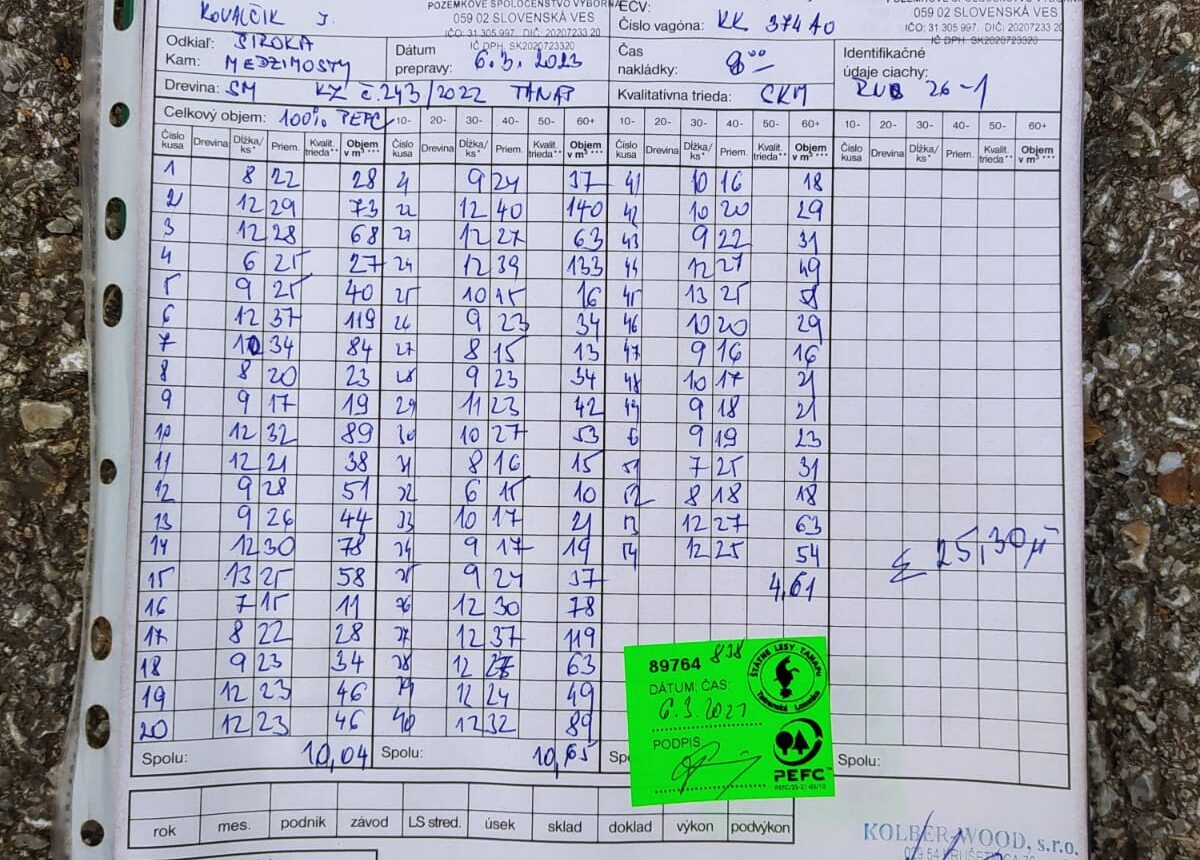 KOVALČIK J.
POZEMKOVÉ SPOLOČENSTVO VÝBORNÁ
059 02 SLOVENSKÁ VES
IČO: 31 305 997, DIČ: 20207233 20
IČ DPH: SK2020723320
EČV:
Číslo vagóna: KK 374 AO
059 02 SLOVENSKÁ VES
IČO: 31 305 997, DIČ: 20207233 20
IČ DPH: SK2020723320
Odkiaľ: ŠIROKA
Kam: MEDZIMOSTY
Dátum prepravy: 6.3.2023
Čas nakládky: 8 00
Identifikačné údaje ciachy: 26-1
Drevina: SM KZ č.243/2022 TANAP
Kvalitatívna trieda: CKM
Celkový objem: 100% PEFC 10- 20- 30- 40- 50- 60+ 10- 20- 30- 40- 50- 60+ 10- 20- 30- 40- 50- 60+
Číslo kusa Drevina Dĺžka/ks* Priem. Kvalit. trieda** Objem v m³ *** Číslo kusa Drevina Dĺžka/ks* Priem. Kvalit. trieda** Objem v m³ *** Číslo kusa Drevina Dĺžka/ks* Priem. Kvalit. trieda** Objem v m³ *** Číslo kusa Drevina Dĺžka/ks* Priem. Kvalit. trieda** Objem v m³ ***
1 8 22 28 21 9 24 37 41 10 16 18
2 12 29 73 22 12 40 140 42 10 20 29
3 12 28 68 23 12 27 63 43 9 22 31
4 6 25 27 24 12 39 133 44 12 27 49
5 9 25 40 25 10 15 16 45 13 25 58
6 12 37 119 26 9 23 34 46 10 20 29
7 10 34 84 27 8 15 13 47 9 16 16
8 8 20 23 28 9 23 34 48 10 17 21
9 9 17 19 29 11 23 42 49 9 18 21
10 12 32 89 30 10 27 53 9 19 23
11 12 21 38 31 8 16 15 51 7 25 31
12 9 28 51 32 6 15 10 52 8 18 18
13 9 26 44 33 10 17 21 53 12 27 63
14 12 30 78 34 9 17 19 54 12 25 54
Σ 25,30
15 13 25 58 35 9 24 37 4,61
16 7 15 11 36 12 30 78
17 8 22 28 37 12 37 119
18 9 23 34 38 12 63
19 12 23 46 39 12 24 49
20 12 23 46 40 12 32 89
Spolu: 10,04 Spolu: 10,65 Spolu:
89764 838
DÁTUM: ČAS:
6.3.2021
PODPIS
ŠTÁTNE LESY TANAPU
Tatranská Lomnica
PEFC™
rok mes. podnik závod LS stred. úsek sklad doklad výkon podvýkon
KOLBER-WOOD, s.r.o.